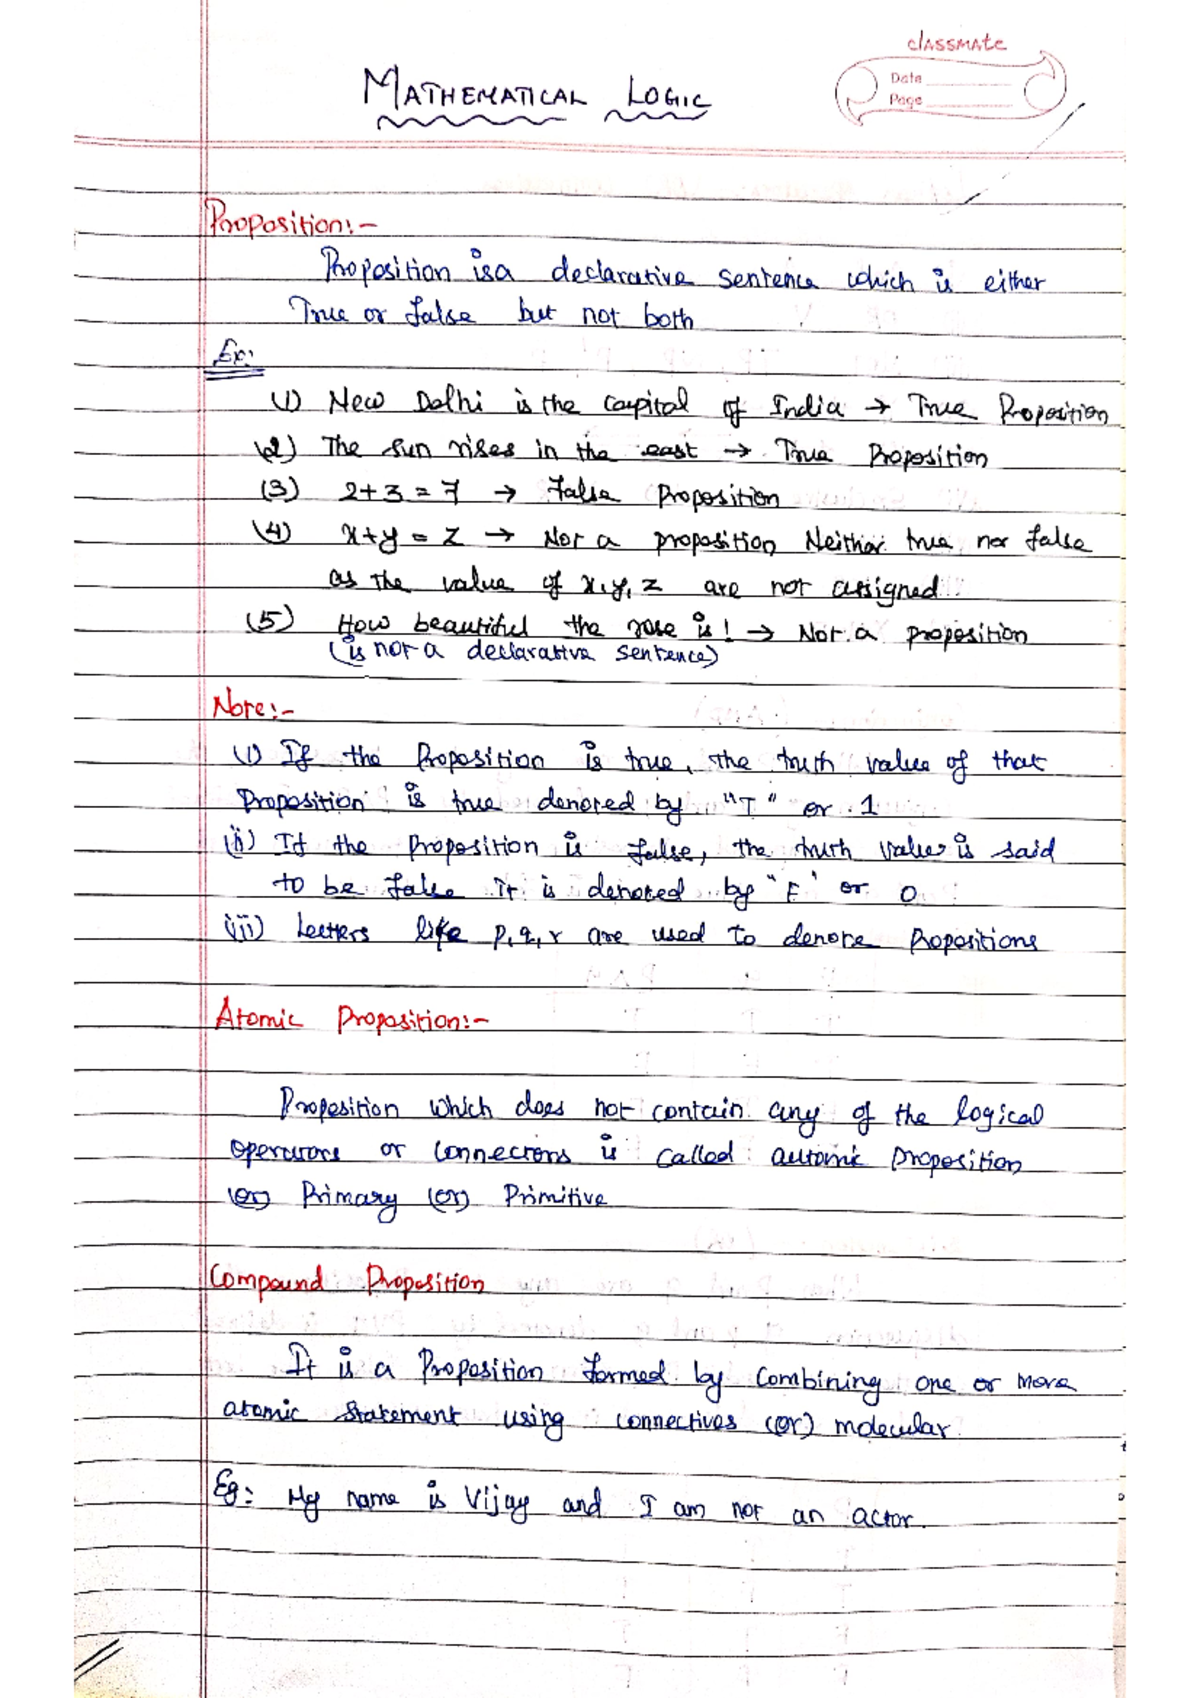 classmate
Date
Page
MATHEMATICAL LOGIC
Proposition:-
Proposition is a declarative sentence which is either
True or false but not both
Ex:
(1) New Delhi is the capital of India → True Proposition
(2) The sun rises in the east → True Proposition
(3) 2+3=7 → False Proposition
(4) x+y=z → Not a proposition Neither true nor false
as the value of x,y,z are not assigned
(5) How beautiful the rose is! → Not a proposition
(is not a declarative sentence)
Note:-
(i) If the Proposition is true, the truth value of that
Proposition is true denoted by "T" or 1
(ii) If the proposition is false, the truth value is said
to be false it is denoted by "F" or 0
(iii) Letters like p,q,r are used to denote Propositions
Atomic Proposition:-
Proposition which does not contain any of the logical
operators or connectors is called automic proposition
(or) Primary (or) Primitive
Compound Proposition
It is a Proposition formed by combining one or more
atomic statement using connectives (or) molecular
Eg: My name is Vijay and I am not an actor.